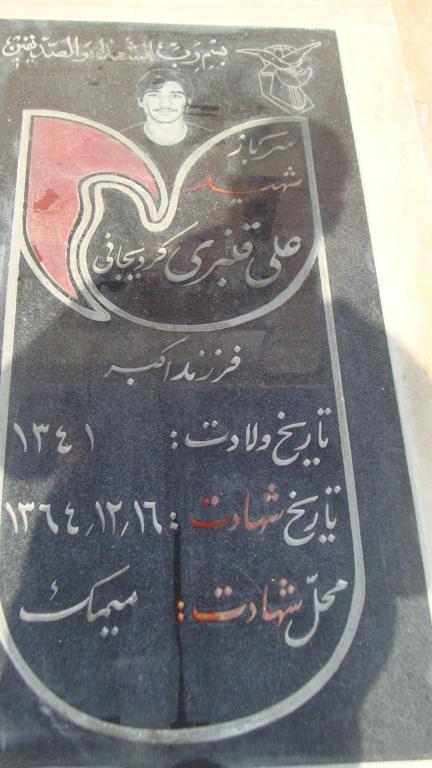 بسم رب الشهداء والصدیقین
سرباز
شهید
علی قنبری کردیجانی
فرزند اکبر
تاریخ ولادت : ۱۳۴۱
تاریخ شهادت : ۱۳۶۴٫۱۲٫۱۶
محلّ شهادت : میمک